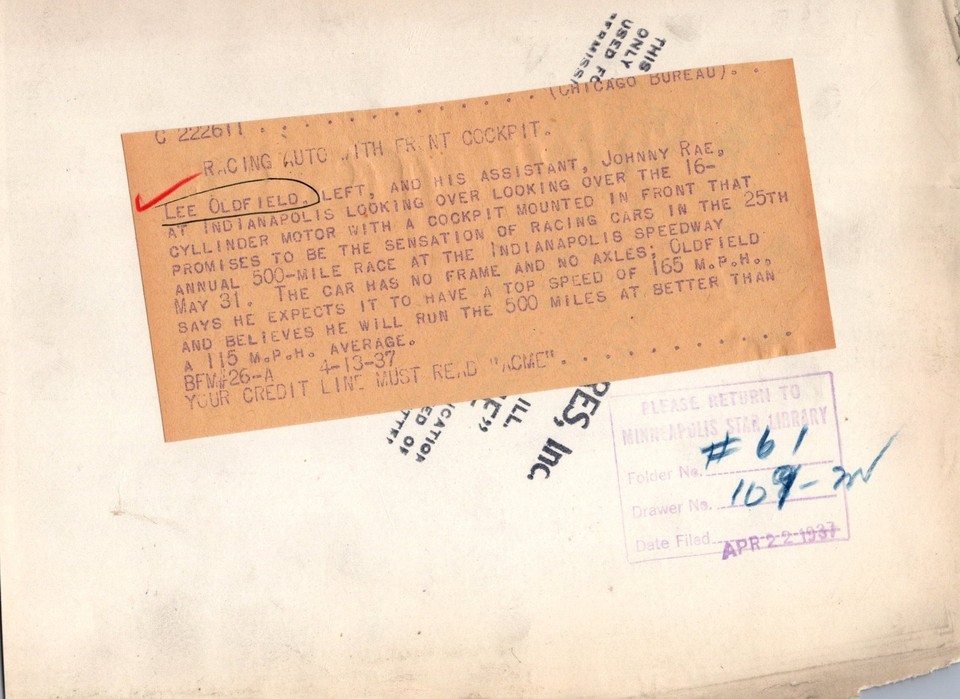 THIS
ONLY
USED FO
PERMISSI
(CHICAGO BUREAU).
C 222611
RACING AUTO WITH FRONT COCKPIT.
LEE OLDFIELD, LEFT, AND HIS ASSISTANT, JOHNNY RAE,
AT INDIANAPOLIS LOOKING OVER LOOKING OVER THE 16-
CYLLINDER MOTOR WITH A COCKPIT MOUNTED IN FRONT THAT
PROMISES TO BE THE SENSATION OF RACING CARS IN THE 25TH
ANNUAL 500-MILE RACE AT THE INDIANAPOLIS SPEEDWAY
MAY 31. THE CAR HAS NO FRAME AND NO AXLES; OLDFIELD
SAYS HE EXPECTS IT TO HAVE A TOP SPEED OF 165 M.P.H.,
AND BELIEVES HE WILL RUN THE 500 MILES AT BETTER THAN
A 115 M.P.H. AVERAGE.
BFM#26-A 4-13-37
YOUR CREDIT LINE MUST READ "ACME"
RES, Inc.
E"
ILL
ICATION
ED OF
TTER
PLEASE RETURN TO
MINNEAPOLIS STAR LIBRARY
Folder No. #61
Drawer No. 109-
Date Filed APR 22 1937